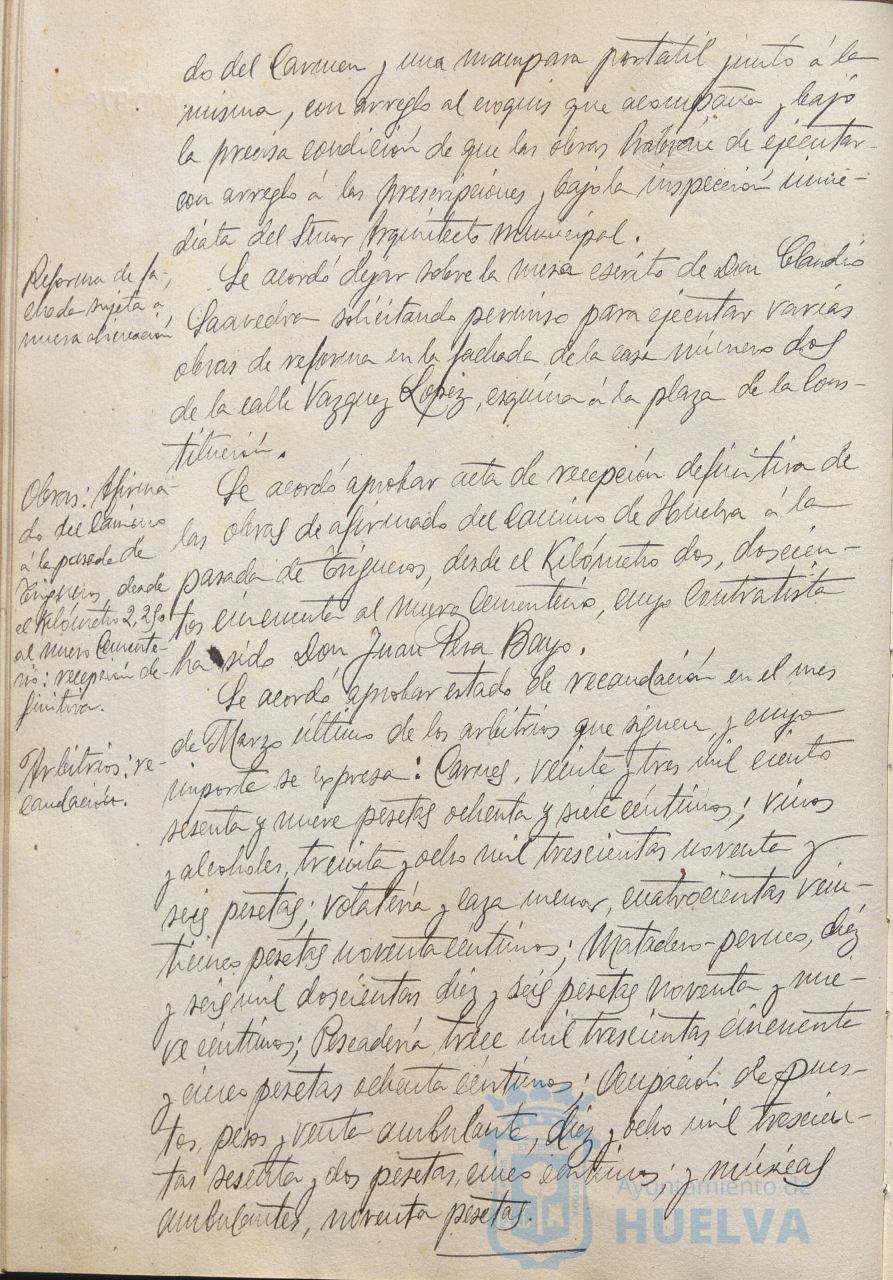 do del Carmen y una mampara portátil junto á la
misma, con arreglo al croquis que acompaña y bajo
la precisa condición de que las obras habran de ejecutar-
con arreglo á las prescripciones y bajo la inspección inme-
diata del Señor Arquitecto municipal.
Reforma de fa-
chada sujeta a
nueva alineación
Se acordó dejar sobre la mesa escrito de Don Claudio
Saavedra solicitando permiso para ejecutar varias
obras de reforma en la fachada de la casa número dos
de la calle Vazquez Lopez, esquina á la plaza de la Cons-
titución.
Obras: Afirma-
do del Camino
á la pasada de
Trigueros, desde
el Kilómetro 2,250
al nuevo Cemente-
rio: recepción de-
finitiva.
Se acordó aprobar acta de recepción definitiva de
las obras de afirmado del Camino de Huelva á la
pasada de Trigueros, desde el Kilómetro dos, doscien-
tos cincuenta al nuevo Cementerio, cuyo Contratista
ha sido Don Juan Pera Bayo.
Arbitrios: re-
caudación.
Se acordó aprobar estado de recaudación en el mes
de Marzo último de los arbitrios que siguen y cuyo
importe se expresa: Carnes, veinte y tres mil ciento
sesenta y nueve pesetas ochenta y siete céntimos; vinos
y alcoholes, treinta y ocho mil trescientas noventa y
seis pesetas; volatería y caza menor, cuatrocientas vein-
ticinco pesetas noventa céntimos; Matadero-permeo, diéz
y seis mil doscientas diéz y seis pesetas noventa y nue-
ve céntimos; Pescadería, trece mil trescientas cincuenta
y cinco pesetas ochenta céntimos; Ocupación de pues-
tos, pesos y venta ambulante, diéz y ocho mil trescien-
tas sesenta y dos pesetas, cinco céntimos y músicas
ambulantes, noventa pesetas.
Ayuntamiento de
HUELVA